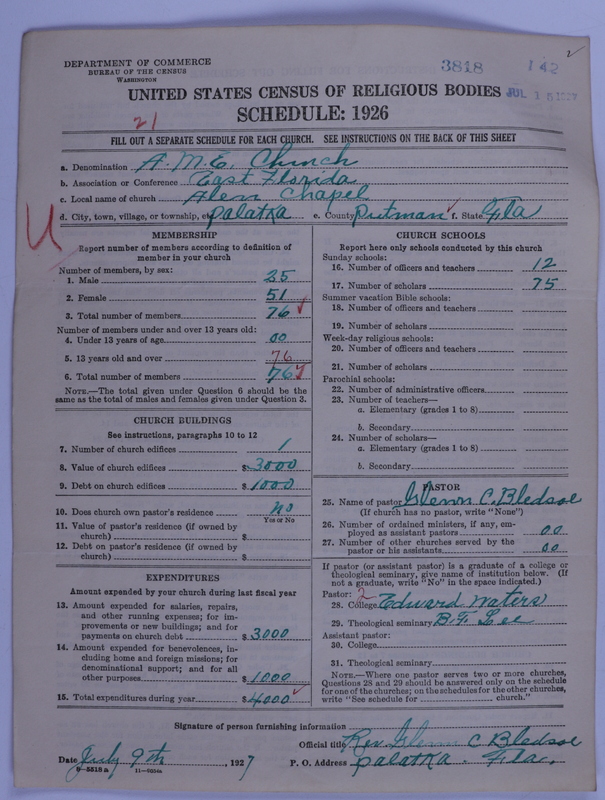 2
DEPARTMENT OF COMMERCE
BUREAU OF THE CENSUS
WASHINGTON
3818 142
UNITED STATES CENSUS OF RELIGIOUS BODIES JUL 15 1927
SCHEDULE: 1926
21
FILL OUT A SEPARATE SCHEDULE FOR EACH CHURCH. SEE INSTRUCTIONS ON THE BACK OF THIS SHEET
a. Denomination A.M.E. Church
b. Association or Conference East Florida
c. Local name of church Alen Chapel
d. City, town, village, or township, etc. Palatka e. County Putman f. State Fla
U
MEMBERSHIP
Report number of members according to definition of
member in your church
Number of members, by sex:
1. Male 25
2. Female 51
3. Total number of members 76
Number of members under and over 13 years old:
4. Under 13 years of age 00
5. 13 years old and over 76
6. Total number of members 76
NOTE.—The total given under Question 6 should be
the same as the total of males and females given under Question 3.
CHURCH BUILDINGS
See instructions, paragraphs 10 to 12
7. Number of church edifices 1
8. Value of church edifices $ 3000
9. Debt on church edifices $ 1000
10. Does church own pastor's residence? no
Yes or No
11. Value of pastor's residence (if owned by
church) $
12. Debt on pastor's residence (if owned by
church) $
EXPENDITURES
Amount expended by church during last fiscal year
13. Amount expended for salaries, repairs,
and other running expenses; for im-
provements or new buildings; and for
payments on church debt $ 3000
14. Amount expended for benevolences, in-
cluding home and foreign missions; for
denominational support; and for all
other purposes $ 1000
15. Total expenditures during year $ 4000
CHURCH SCHOOLS
Report here only schools conducted by this church
Sunday schools:
16. Number of officers and teachers 12
17. Number of scholars 75
Summer vacation Bible schools:
18. Number of officers and teachers
19. Number of scholars
Week-day religious schools:
20. Number of officers and teachers
21. Number of scholars
Parochial schools:
22. Number of administrative officers
23. Number of teachers—
a. Elementary (grades 1 to 8)
b. Secondary
24. Number of scholars—
a. Elementary (grades 1 to 8)
b. Secondary
PASTOR
25. Name of pastor Glenn C. Bledsoe
(If church has no pastor, write "None")
26. Number of ordained ministers, if any, em-
ployed as assistant pastors 00
27. Number of other churches served by the
pastor or his assistants 00
If pastor (or assistant pastor) is a graduate of a college or
theological seminary, give name of institution below. (If
not a graduate, write "No" in the space indicated.)
Pastor: 2
28. College Edward Waters
29. Theological seminary B.F. Lee
Assistant pastor:
30. College
31. Theological seminary
NOTE.—Where one pastor serves two or more churches,
Questions 28 and 29 should be answered only on the schedule
for one of the churches; on the schedules for the other churches,
write "See schedule for church."
Signature of person furnishing information
Official title Rev. Glenn C Bledsoe
Date July 9th, 1927 P. O. Address Palatka. Fla.
8-5518a 11-9034a